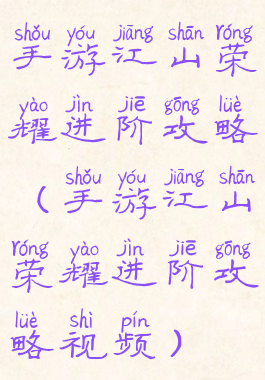 shǒu yóu jiāng shān róng
手游江山荣
yào jìn jiē gōng lüè
耀进阶攻略
shǒu yóu jiāng shān
(手游江山
róng yào jìn jiē gōng
荣耀进阶攻
lüè shì pín
略视频)